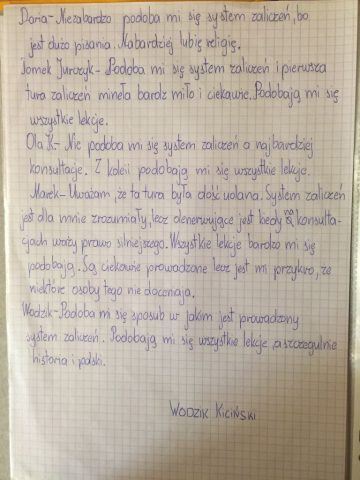 Daria-Niezabardzo podoba mi się system zaliczeń, bo
jest dużo pisania. Nabardziej lubię religię.
Tomek Jurczyk-Podoba mi się system zaliczeń i pierwsza
tura zaliczeń mineła bardz miło i ciekawie. Podobają mi się
wszystkie lekcje.
Ola K.- Nie podoba mi się system zaliczeń a najbardziej
konsultacje. Z koleii podobają mi się wszystkie lekcje.
Marek-Uważam, że ta tura była dość udana. System zaliczeń
jest dla mnie zrozumiały, lecz denerwujące jest kiedy na konsulta-
cjach waży prawo silniejszego. Wszystkie lekcje bardzo mi się
podobają. Są ciekawie prowadzone lecz jest mi przykro, że
niektóre osoby tego nie doceniają.
Wodzik-Podoba mi się sposub w jakim jest prowadzony
system zaliczeń. Podobają mi się wszystkie lekcje, a szczegulnie
historia i polski.
WODZIK KICIŃSKI